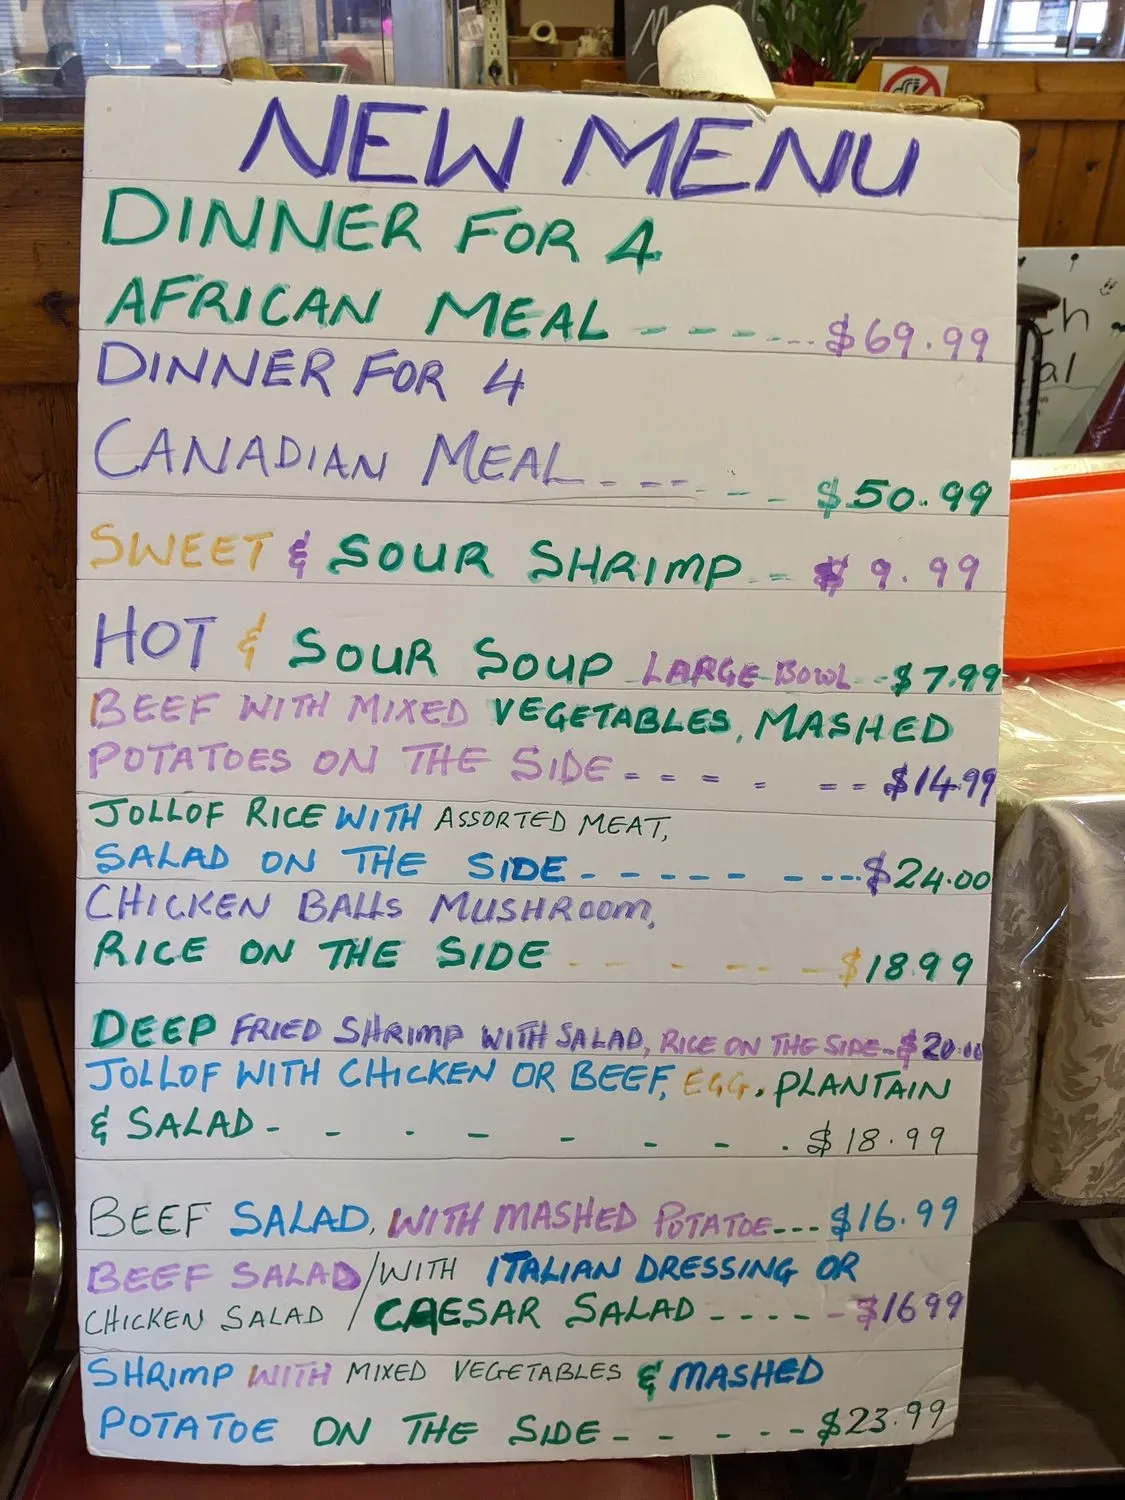 NEW MENU
DINNER FOR 4
AFRICAN MEAL - - - - - . . . $69.99
DINNER FOR 4
CANADIAN MEAL - - - - - - - $50.99
SWEET & SOUR SHRIMP - - $9.99
HOT & SOUR SOUP LARGE BOWL - $7.99
BEEF WITH MIXED VEGETABLES, MASHED
POTATOES ON THE SIDE = = = = = = $14.99
JOLLOF RICE WITH ASSORTED MEAT,
SALAD ON THE SIDE - - - - - - - - - $24.00
CHICKEN BALLS MUSHROOM,
RICE ON THE SIDE - - - - - - $1899
DEEP FRIED SHRIMP WITH SALAD, RICE ON THE SIDE - $20.00
JOLLOF WITH CHICKEN OR BEEF, EGG, PLANTAIN
& SALAD - - - - - - - . $18.99
BEEF SALAD, WITH MASHED POTATOE - - - $16.99
BEEF SALAD / WITH ITALIAN DRESSING OR
CHICKEN SALAD / CAESAR SALAD - - - - - $1699
SHRIMP WITH MIXED VEGETABLES & MASHED
POTATOE ON THE SIDE - - - - - - $23.99